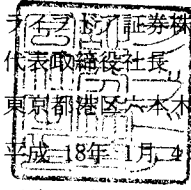 ライブドア証券株
代表取締役社長
東京都港区六本木
平成 18年 1月 4